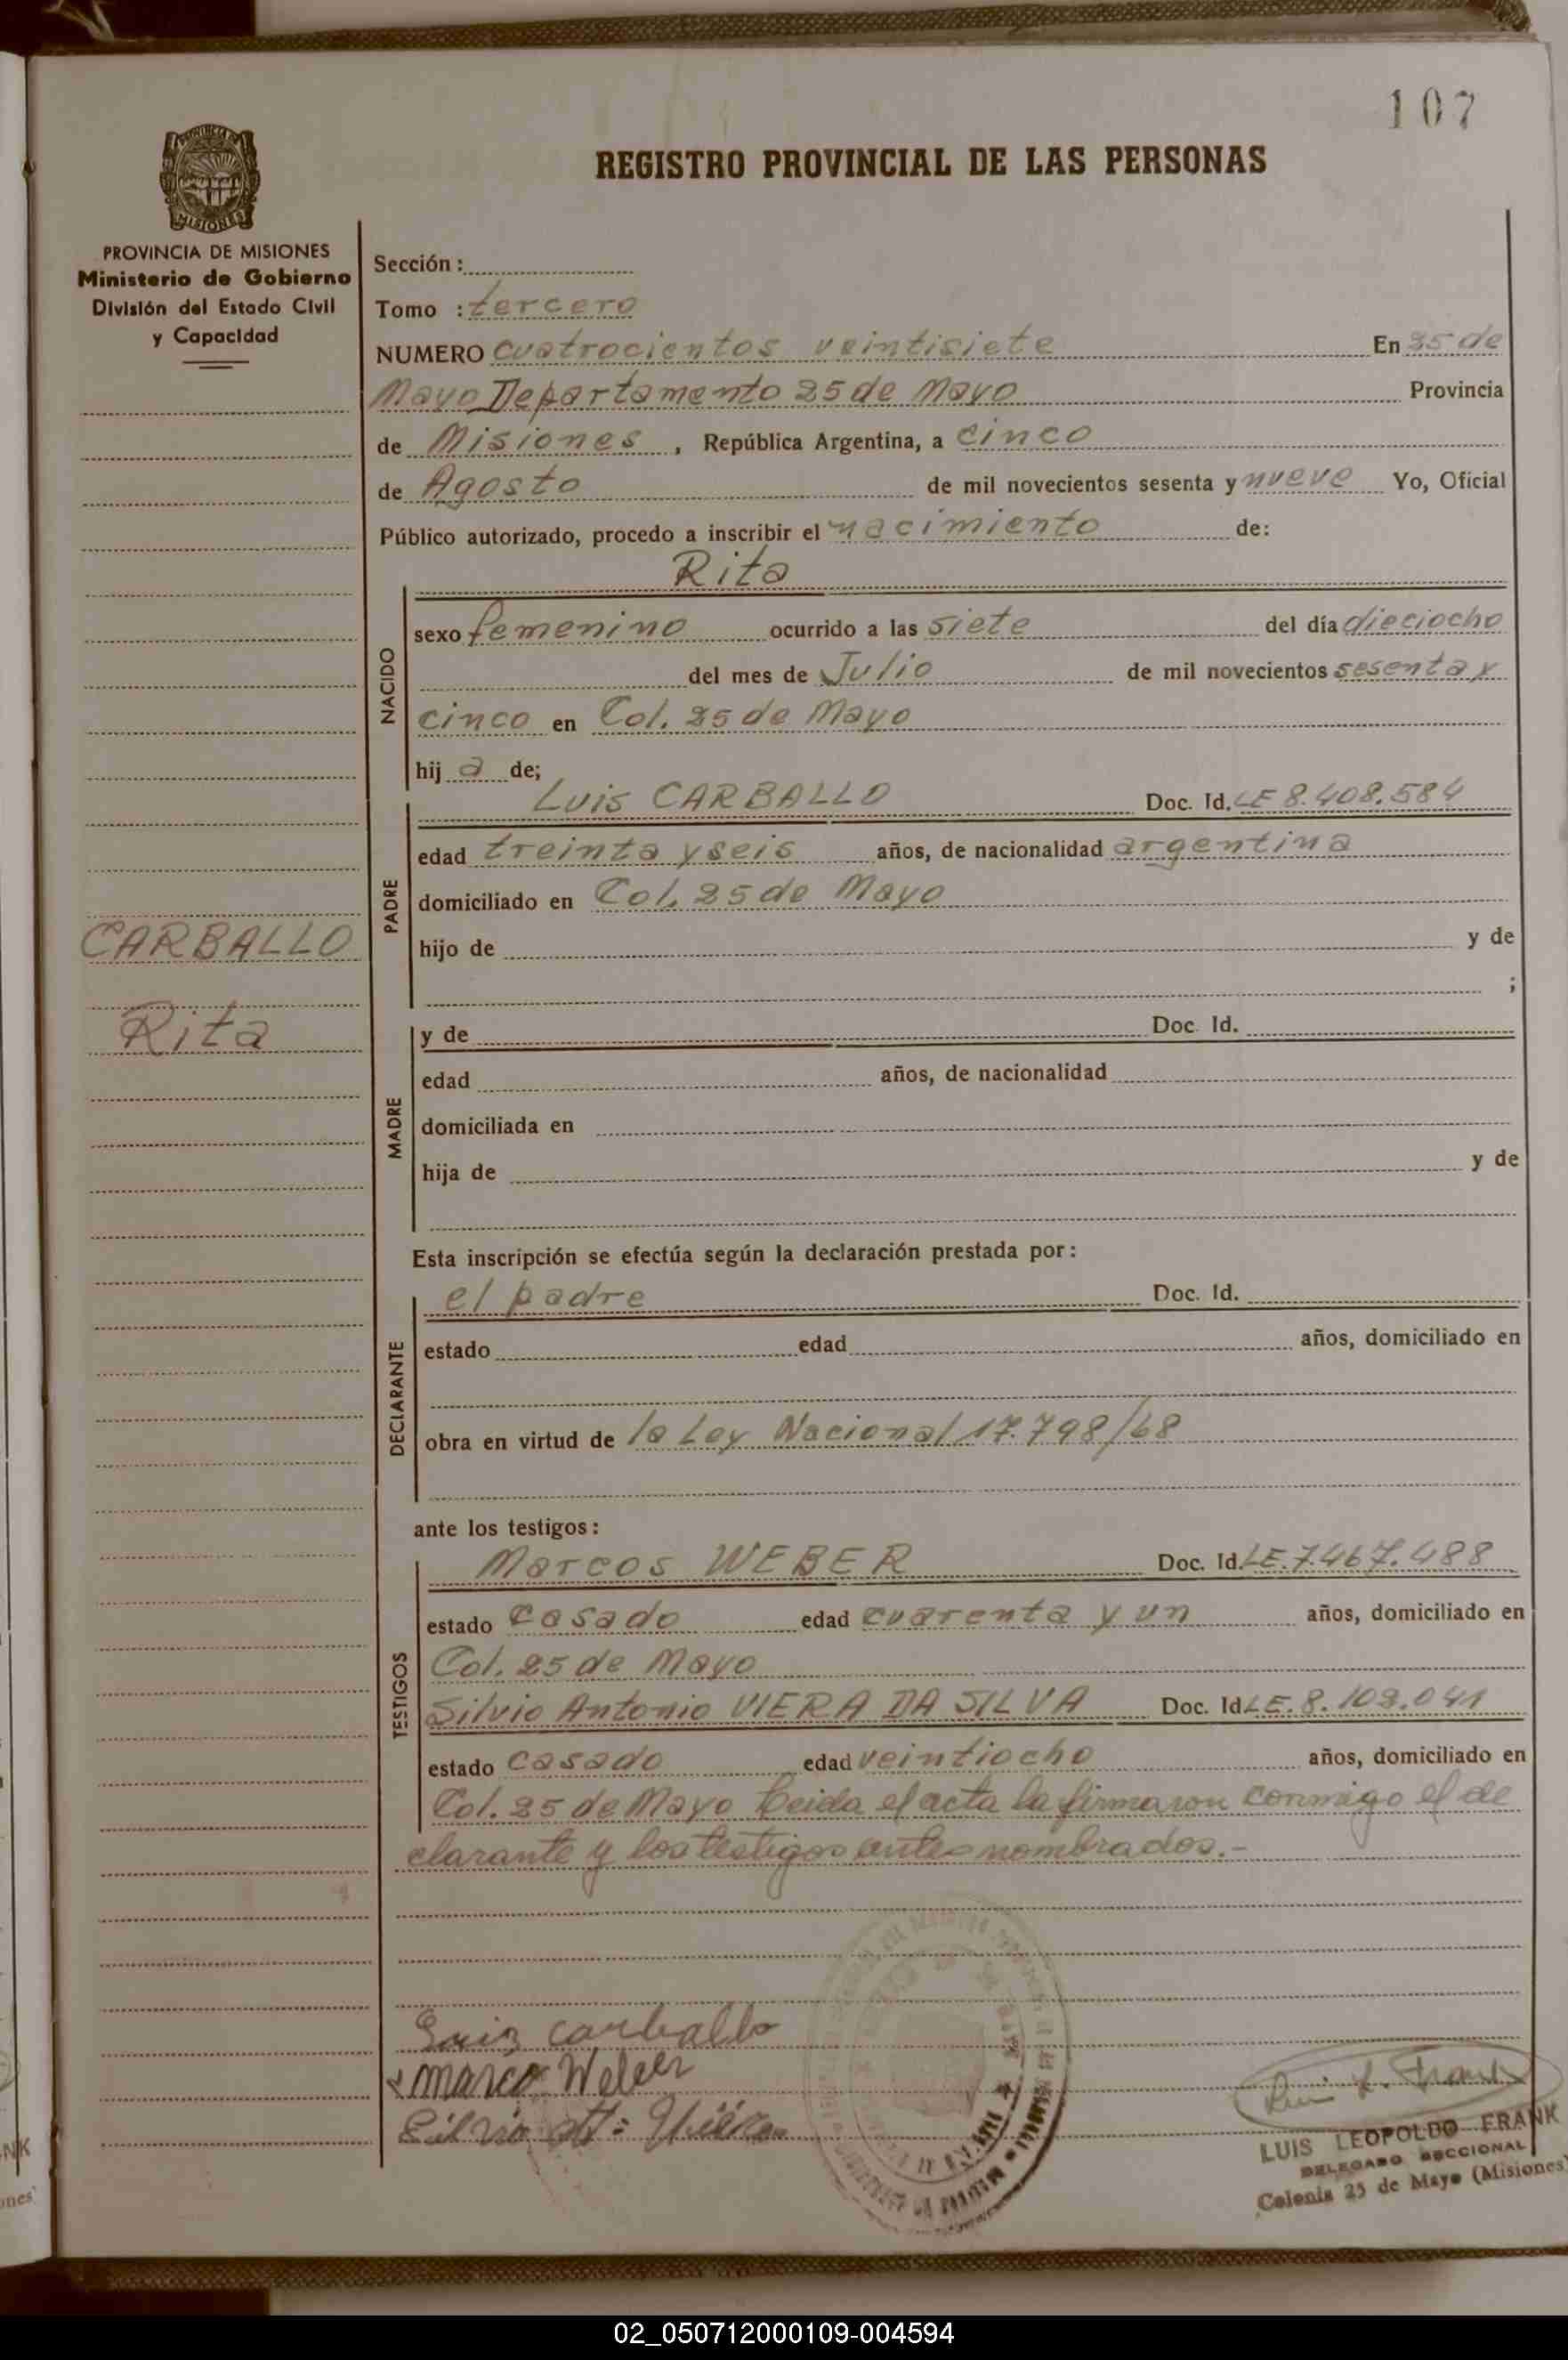 107
REGISTRO PROVINCIAL DE LAS PERSONAS
MISIONES
PROVINCIA DE MISIONES
Ministerio de Gobierno
División del Estado Civil
y Capacidad
CARBALLO
Rita
Sección :
Tomo : tercero
NUMERO cuatrocientos veintisiete En 25 de
Mayo Departamento 25 de Mayo Provincia
de Misiones , República Argentina, a cinco
de Agosto de mil novecientos sesenta y nueve Yo, Oficial
Público autorizado, procedo a inscribir el nacimiento de:
Rita
NACIDO
sexo femenino ocurrido a las siete del día dieciocho
del mes de Julio de mil novecientos sesenta y
cinco en Col. 25 de Mayo
hij a de;
Luis CARBALLO Doc. Id. LE 8.408.584
PADRE
edad treinta y seis años, de nacionalidad argentina
domiciliado en Col. 25 de Mayo
hijo de y de
;
MADRE
y de Doc. Id.
edad años, de nacionalidad
domiciliada en
hija de y de
Esta inscripción se efectúa según la declaración prestada por:
DECLARANTE
el padre Doc. Id.
estado edad años, domiciliado en
obra en virtud de la Ley Nacional 17.798/68
ante los testigos:
TESTIGOS
Marcos WEBER Doc. Id. LE.7.467.488
estado casado edad cuarenta y un años, domiciliado en
Col. 25 de Mayo
Silvio Antonio VIERA DA SILVA Doc. Id LE.8.108.041
estado casado edad veintiocho años, domiciliado en
Col. 25 de Mayo Leida el acta la firmaron conmigo el de
clarante y los testigos antes nombrados.-
Luiz carballo
Marco Weber
Silvio
LUIS LEOPOLDO FRANK
DELEGADO SECCIONAL
Colonia 25 de Mayo (Misiones)
02_050712000109-004594